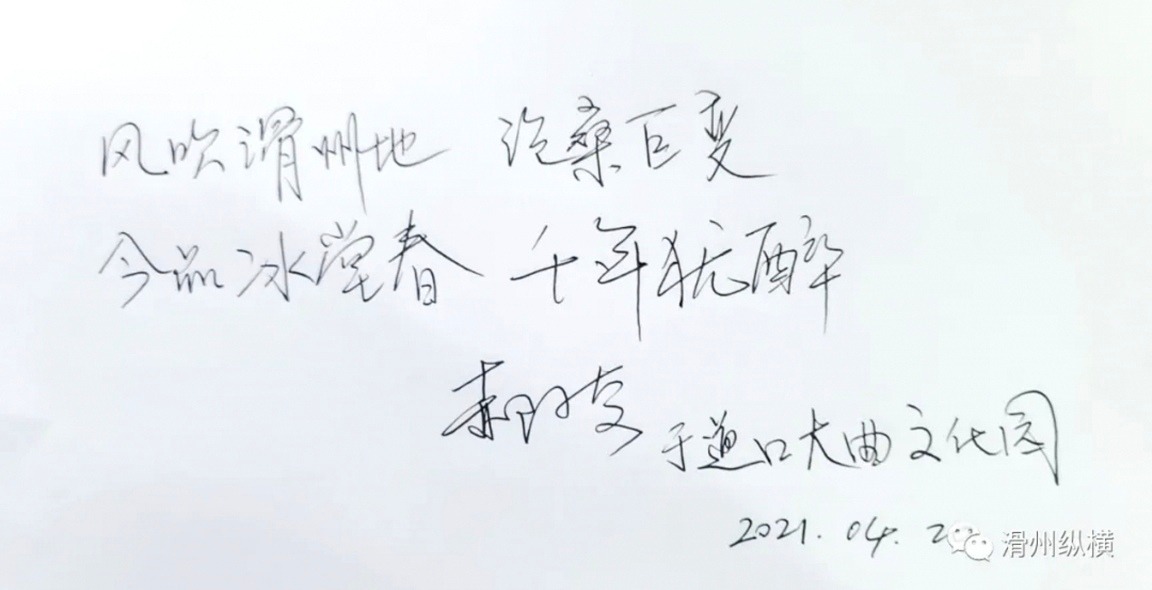 风吹滑州地 沧桑巨变
今品冰堂春 十年犹醉
于道口大曲文化园
2021.04.2
滑州纵横